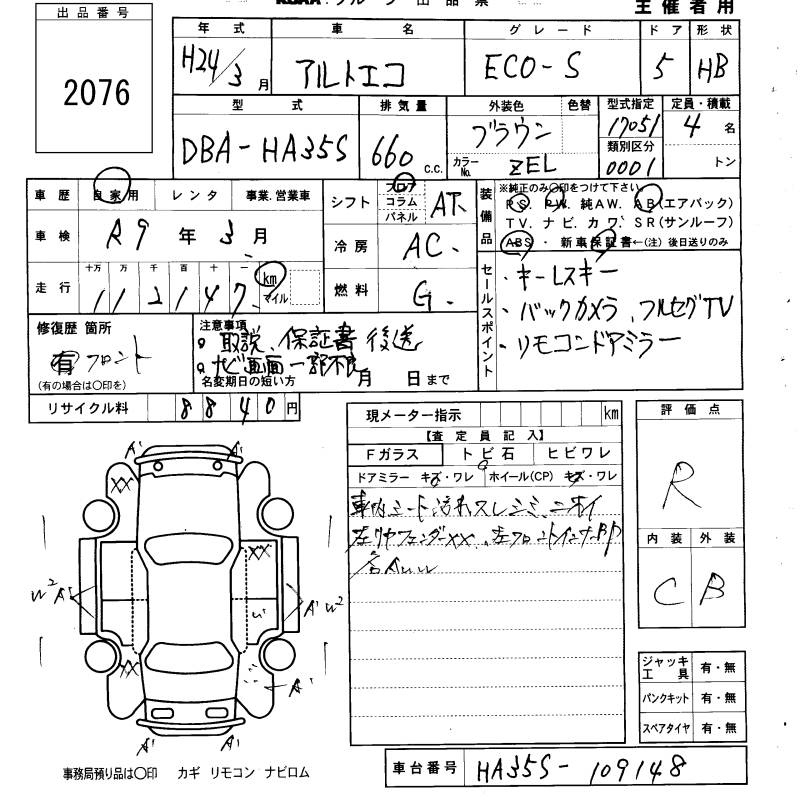 出品番号
2076
主催者用
年式 車名 グレード ドア 形状
H24/3月 アルトエコ ECO-S 5 HB
型式 排気量 外装色 色替 型式指定 定員・積載
DBA-HA35S 660 c.c. ブラウン 17051 4名
カラーNo. ZEL 類別区分 0001 トン
車歴 自家用 レンタ 事業.営業車
車検 R9年3月
走行 十万 万 千 百 十 一
112147 km マイル
シフト フロア コラム パネル AT.
冷房 AC.
燃料 G.
装備品 ※純正のみ〇印をつけて下さい
PS. PW. 純AW. AB(エアバック)
TV. ナビ. カワ. SR(サンルーフ)
ABS・新車保証書←(注)後日送りのみ
セールスポイント
・キーレスキー
・バックカメラ、フルセグTV
・リモコンドアミラー
修復歴 箇所
有 フロント
(有の場合は〇印を)
注意事項
取説、保証書後送
ナビ画面一部不良
名変期日の短い方 月 日まで
リサイクル料 8840円
現メーター指示 km
【査定員記入】
Fガラス トビ石 ヒビワレ
ドアミラー キズ・ワレ ホイール(CP) キズ・ワレ
車内シート汚れスレシミ、ニオイ
評価点
R
内装 外装
C B
A' A'
XX
XX
W² A' A' W²
XX
A'
A' A'
ジャッキ工具 有・無
パンクキット 有・無
スペアタイヤ 有・無
事務局預り品は〇印 カギ リモコン ナビロム
車台番号 HA35S-109148